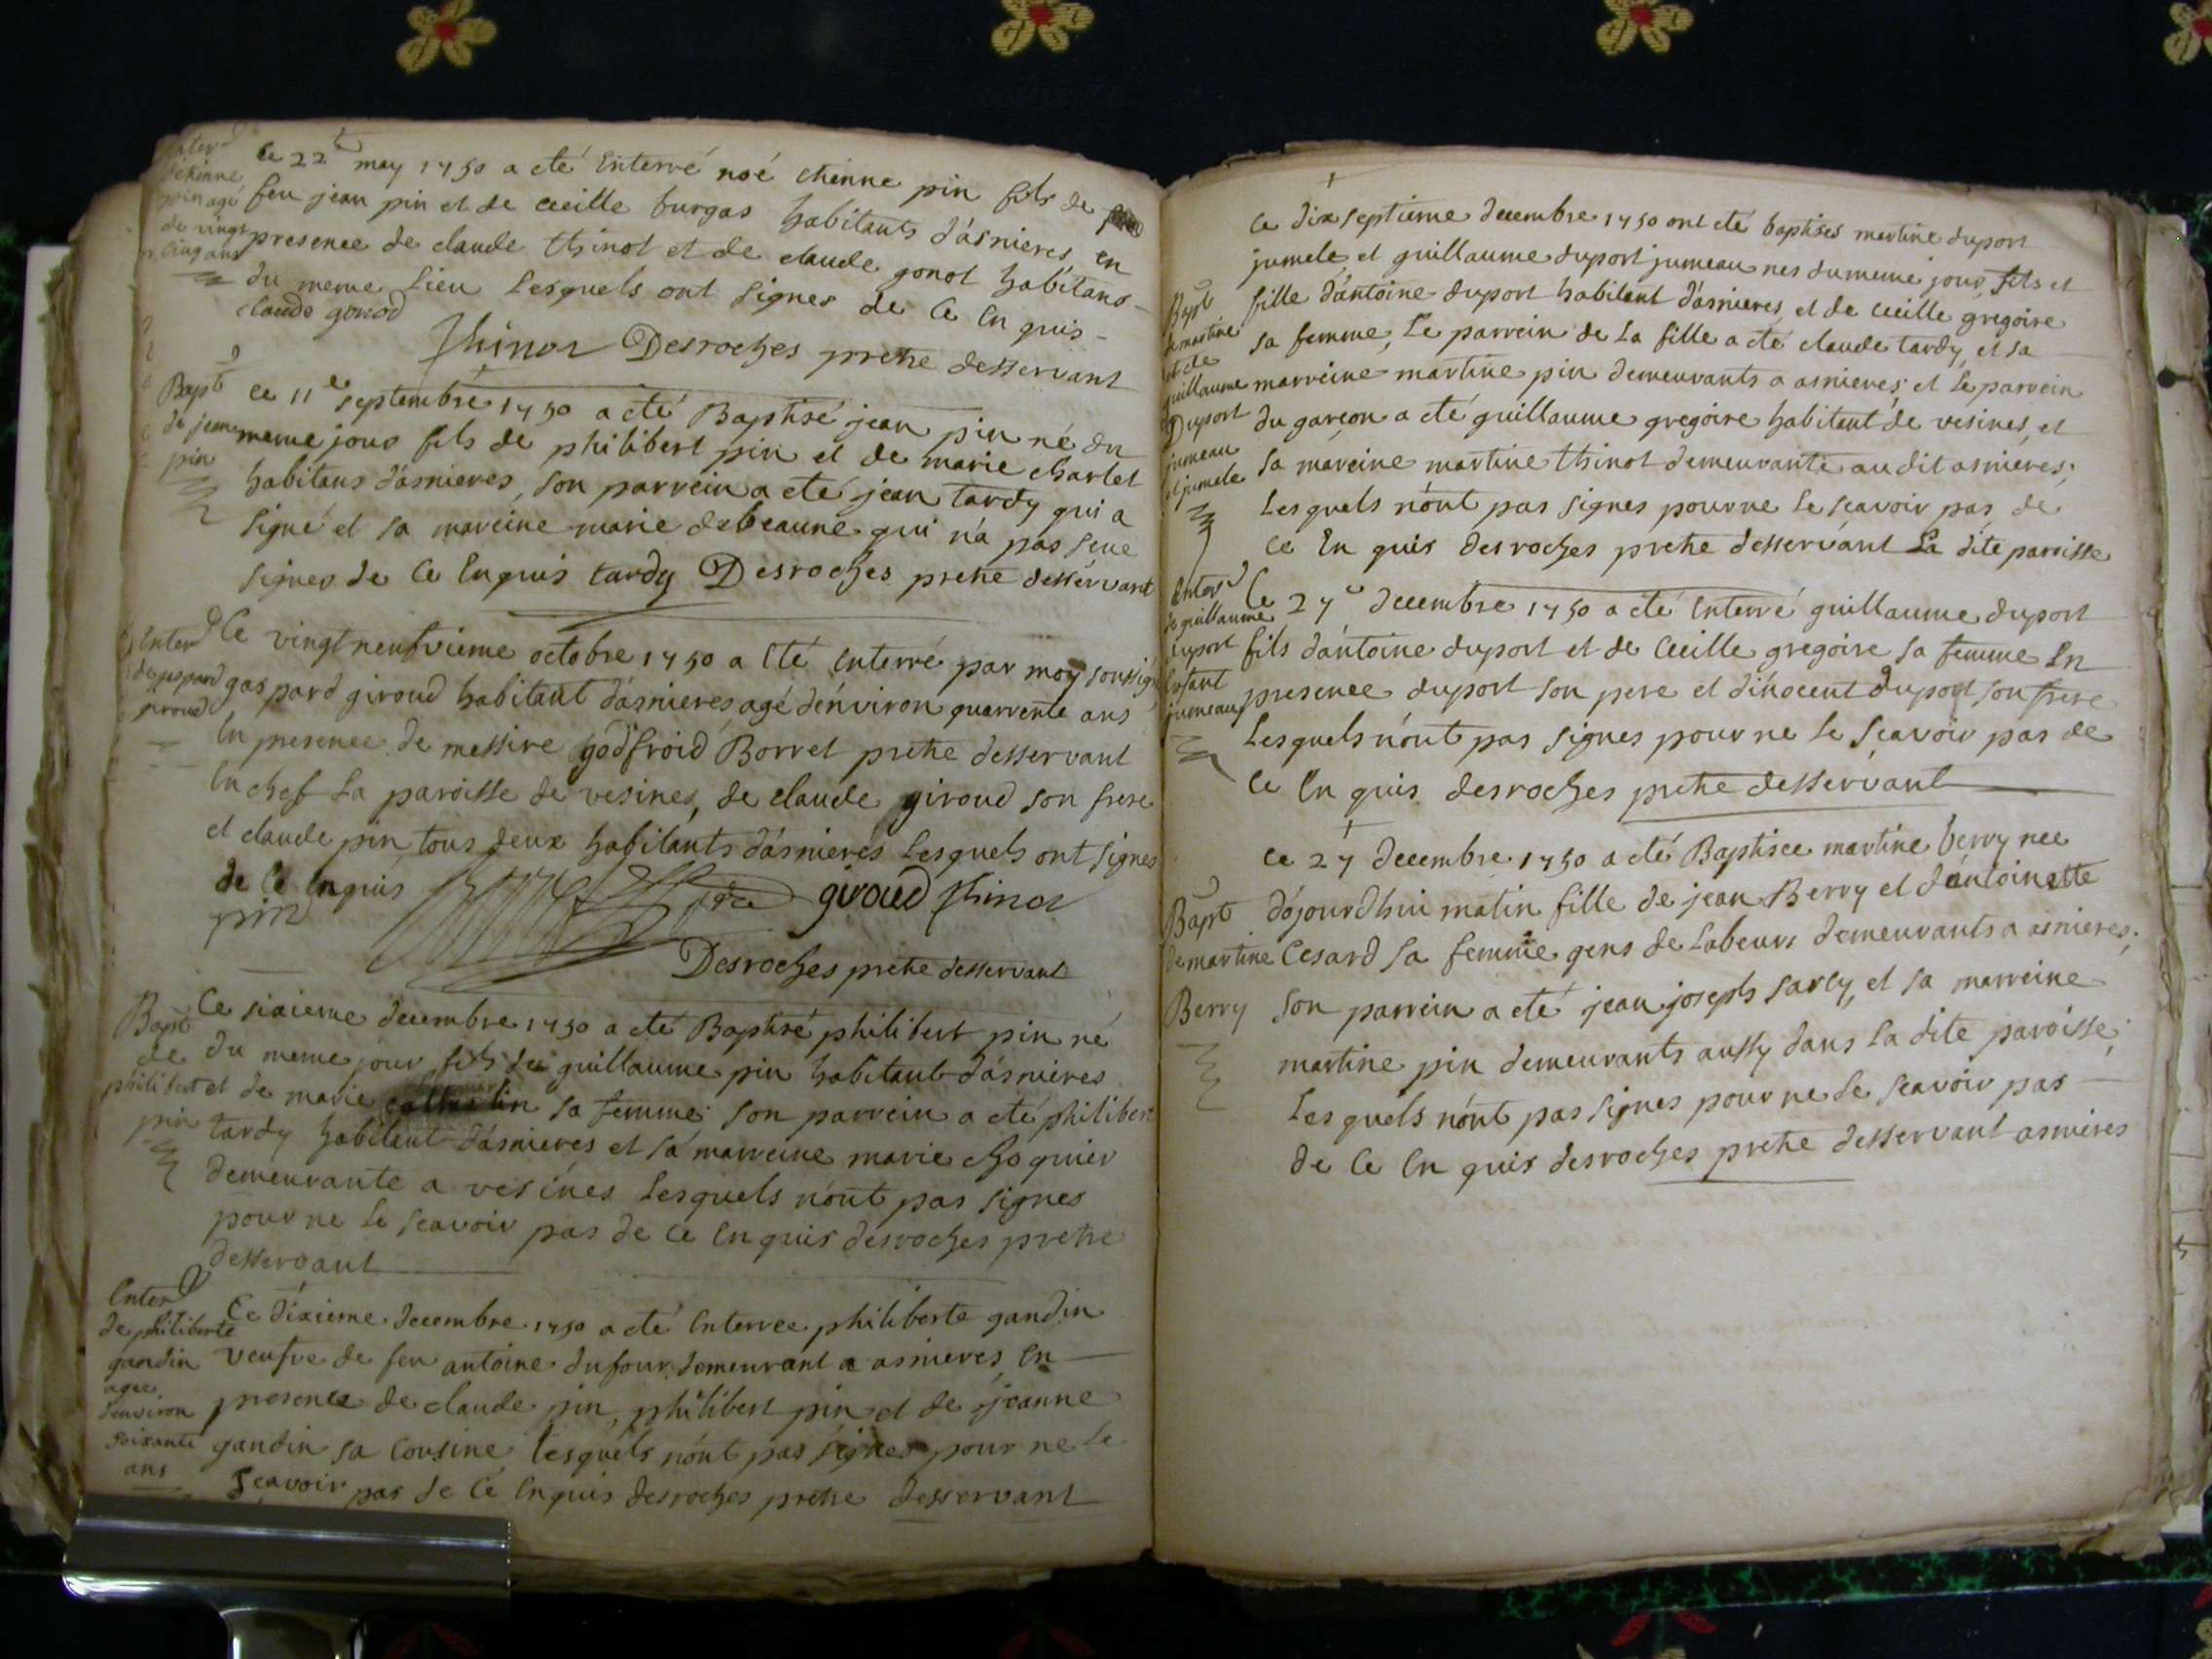 Enter
d'etienne
pin agé
de vingt
cinq ans
Le 22e may 1750 a eté Enterré noé etienne pin fils de
feu jean pin et de cecille burgas habitants d'asnieres en
presence de claude thinot et de claude gonot habitans
du meme Lieu Lesquels ont signes de Ce En quis
claude gonod
thinot Desroches pretre desservant
Bapt
de jean
pin
Ce 11e septembre 1750 a eté Baptisé jean pin né du
meme jour fils de philibert pin et de marie charlet
habitans d'asnieres, son parrein a eté jean tardy qui a
signé et sa mareine marie debeaune qui n'a pas sceue
signer de Ce Enquis tardy Desroches pretre desservant
Enter
de gaspard
giroud
Ce vingtneufvieme octobre 1750 a Eté Enterré par moy soussigné
gaspard giroud habitant d'asnieres agé d'environ quarrente ans
En presence de messire godfroid Borret pretre desservant
En chef La paroisse de vesines, de claude giroud son frere
et claude pin, tous deux habitants d'asnieres Lesquels ont signes
de Ce Enquis
pin giroud thinot
Desroches pretre desservant
Bapt
de
philibert
pin
Ce sixieme decembre 1750 a eté Baptisé philibert pin né
du meme jour, fils de guillaume pin habitant d'asnieres
et de marie sa femme son parrein a eté philibert
tardy habitant d'asnieres et sa marreine marie choquier
demeurante a vesines Lesquels n'ont pas signes
pour ne Le scavoir pas de Ce Enquis desroches pretre
desservant
Enter
de philiberte
gandin
agee
d'environ
soixante
ans
Ce dixieme decembre 1750 a eté Enterree philiberte gandin
veufve de feu antoine dufour demeurant a asnieres, En
presence de claude pin, philibert pin et de jeanne
gandin sa Cousine Lesquels n'ont pas signes pour ne Le
scavoir pas de Ce Enquis desroches pretre desservant
Bapt
de martine
et de
guillaume
Duport
jumeau
et jumele
Ce dix septieme decembre 1750 ont eté baptises martine duport
jumele et guillaume duport jumeau nes du meme jour fils et
fille d'antoine duport habitant d'asnieres, et de cecille gregoire
sa femme, Le parrein de La fille a eté claude tardy, et sa
marreine martine pin demeurants a asnieres; et Le parrein
du garçon a eté guillaume gregoire habitant de vesines, et
sa mareine martine thinot demeurante au dit asnieres;
Lesquels n'ont pas signes pour ne Le scavoir pas de
Ce En quis desroches pretre desservant La dite paroisse
Enter
de guillaume
duport
Enfant
jumeau
Ce 27e decembre 1750 a eté Enterré guillaume duport
fils d'antoine duport et de Cecille gregoire sa femme En
presence duport son pere et d'inocent duport son frere
Lesquels n'ont pas signes pour ne Le sçavoir pas de
Ce En quis desroches pretre desservant
Bapt
de martine
Berry
Ce 27 decembre 1750 a eté Baptisee martine berry nee
d'ojourd'hui matin fille de jean Berry et d'antoinette
Cesard sa femme gens de Labeurs demeurants a asnieres;
son parrein a eté jean joseph sarcy, et sa marreine
martine pin demeurants aussy dans La dite paroisse;
Lesquels n'ont pas signes pour ne Le scavoir pas
de Ce En quis desroches pretre desservant asnieres